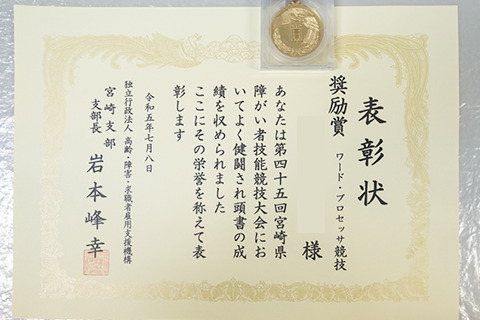 表彰状
奨励賞 ワード・プロセッサ競技
様
あなたは第四十五回宮崎県
障がい者技能競技大会にお
いてよく健闘され頭書の成
績を収められました
ここにその栄誉を称えて表
彰します
令和五年七月八日
独立行政法人 高齢・障害・求職者雇用支援機構
宮崎支部
支部長 岩本峰幸